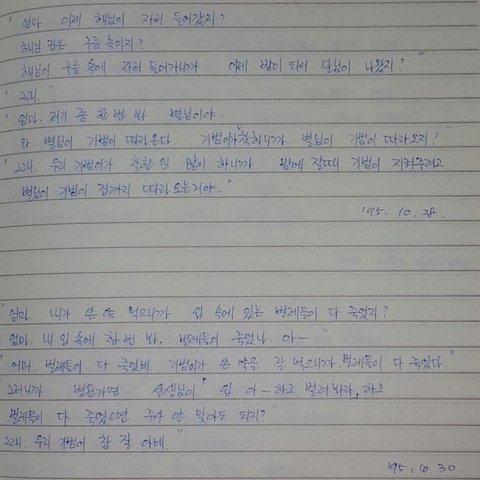 "엄마. 이제 해님이 자러 들어갔지?
해님 집은 구름 속이지?
해님이 구름 속에 자러 들어가니까 이제 밤이 되서 달님이 나왔지?"
"그래."
"엄마. 저기 좀 한번 봐. 별님이야.
와. 별님이 기범이 따라온다. 기범이가 착하니까 별님이 기범이 따라오지?"
"그래. 우리 기범이가 착한 일 많이 하니까 밤에 잘때 기범이 지켜주려고
별님이 기범이 집까지 따라오는거야."
'95. 10. 28.
"엄마. 내가 쓴 약 먹으니까 입 속에 있는 벌레들이 다 죽었지?
엄마. 내 입 속에 한번 봐. 벌레들이 죽었나. 아-."
"어머. 벌레들이 다 죽었네. 기범이가 쓴 약을 잘 먹으니까 벌레들이 다 죽었다."
"그러니까 병원가면 선생님이 「입 아-하고 벌려봐라」하고
벌레들이 다 죽었으면 주사 안 맞아도 되지?"
"그래. 우리 기범이 참 잘 아네."
'95. 6. 30.